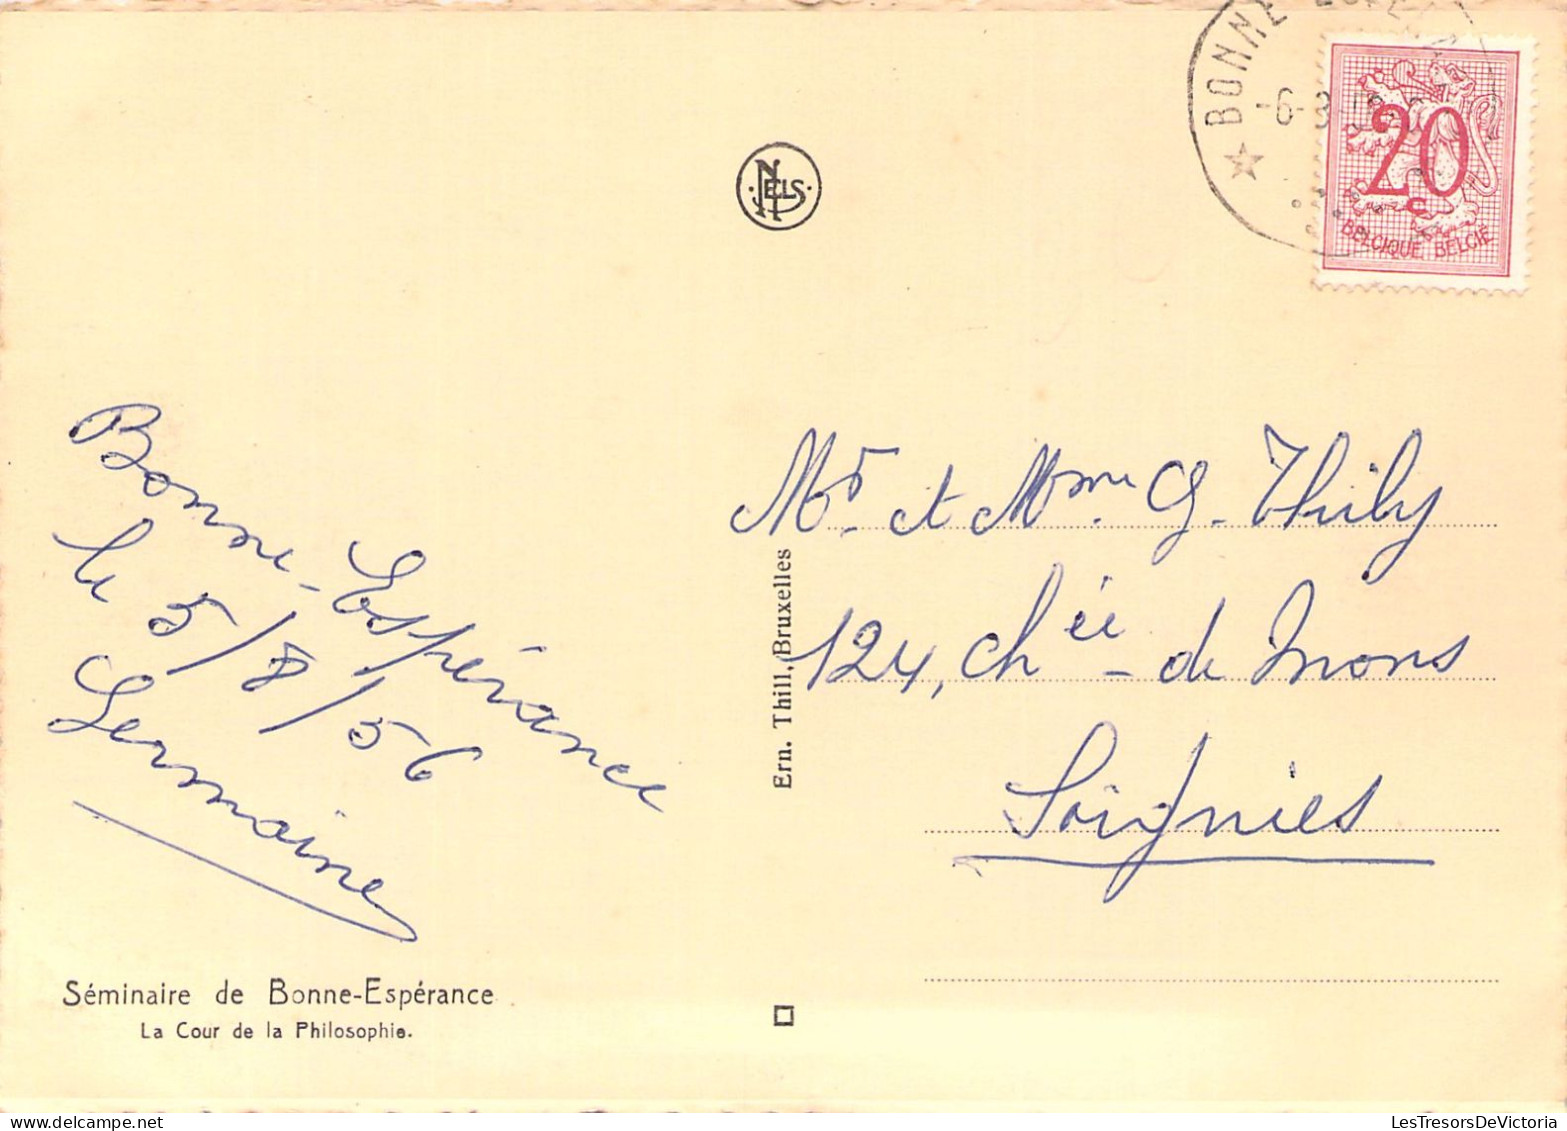 BONNE
-6-8-
20
C
BELGIQUE BELGIË
NELS
Bonne-Espérance
le 5/8/56
Germaine
Mr. et Mme. G. Thiby
124, chée de Mons
Soignies
Ern. Thill, Bruxelles
Séminaire de Bonne-Espérance
La Cour de la Philosophie.
LesTresorsDeVictoria